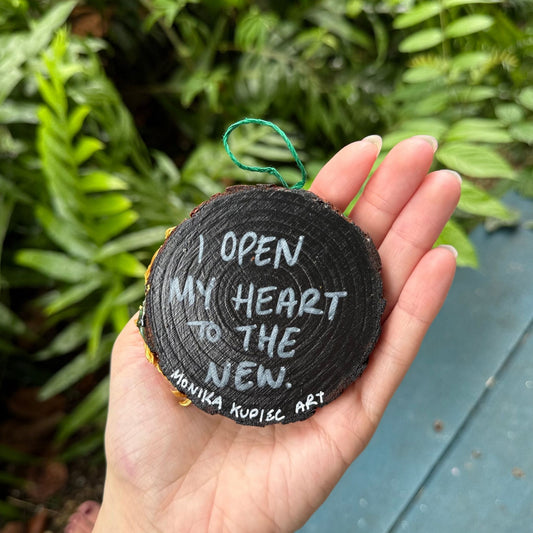 I OPEN
MY HEART
TO THE
NEW.
MONIKA KUPIEC ART